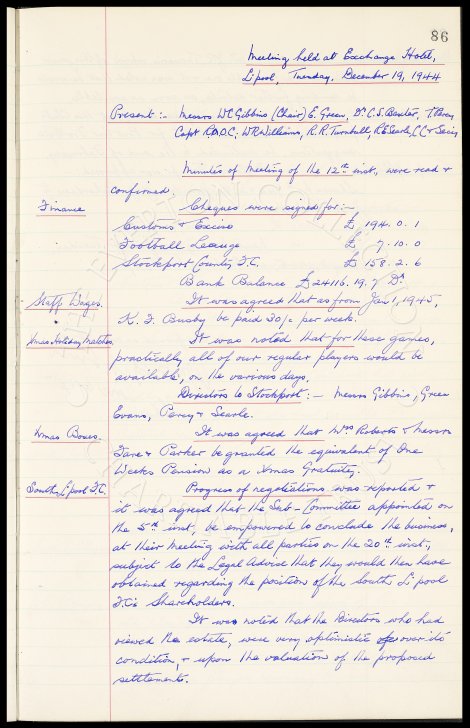 86
Meeting held at Exchange Hotel,
L'pool, Tuesday, December 19, 1944
Present :- Messrs W.C. Gibbins (Chair) E. Green, Dr. C.S. Baxter, T. Percy
Capt R.D.O.C; W.R. Williams, R.R. Turnbull, R.E. Searle, C.C. & Secy
Minutes of Meeting of the 12th inst, were read &
confirmed.
Finance
Cheques were signed for :-
Customs & Excise £ 194. 0. 1
Football League £ 7. 10. 0
Stockport County F.C. £ 158. 2. 6
Bank Balance £24116. 19. 7 Dr
Staff Wages.
It was agreed that as from Jan 1, 1945,
K. I. Busby be paid 30/- per week.
Xmas Holiday Matches.
It was noted that for these games,
practically all of our regular players would be
available, on the various days.
Directors to Stockport :- Messrs Gibbins, Green
Evans, Percy & Searle.
Xmas Boxes.
It was agreed that Mrs Roberts & Messrs
Fare & Parker be granted the equivalent of One
Weeks Pension as a Xmas Gratuity.
South L'pool F.C.
Progress of negotiations was reported &
it was agreed that the Sub-Committee appointed on
the 5th inst, be empowered to conclude the business,
at their Meeting with all parties on the 20th inst,
subject to the Legal Advise that they would then have
obtained regarding the position of the South L'pool
F.C's Shareholders.
It was noted that the Directors who had
viewed the estate, were very optimistic over its
condition, & upon the valuation of the proposed
settlement.